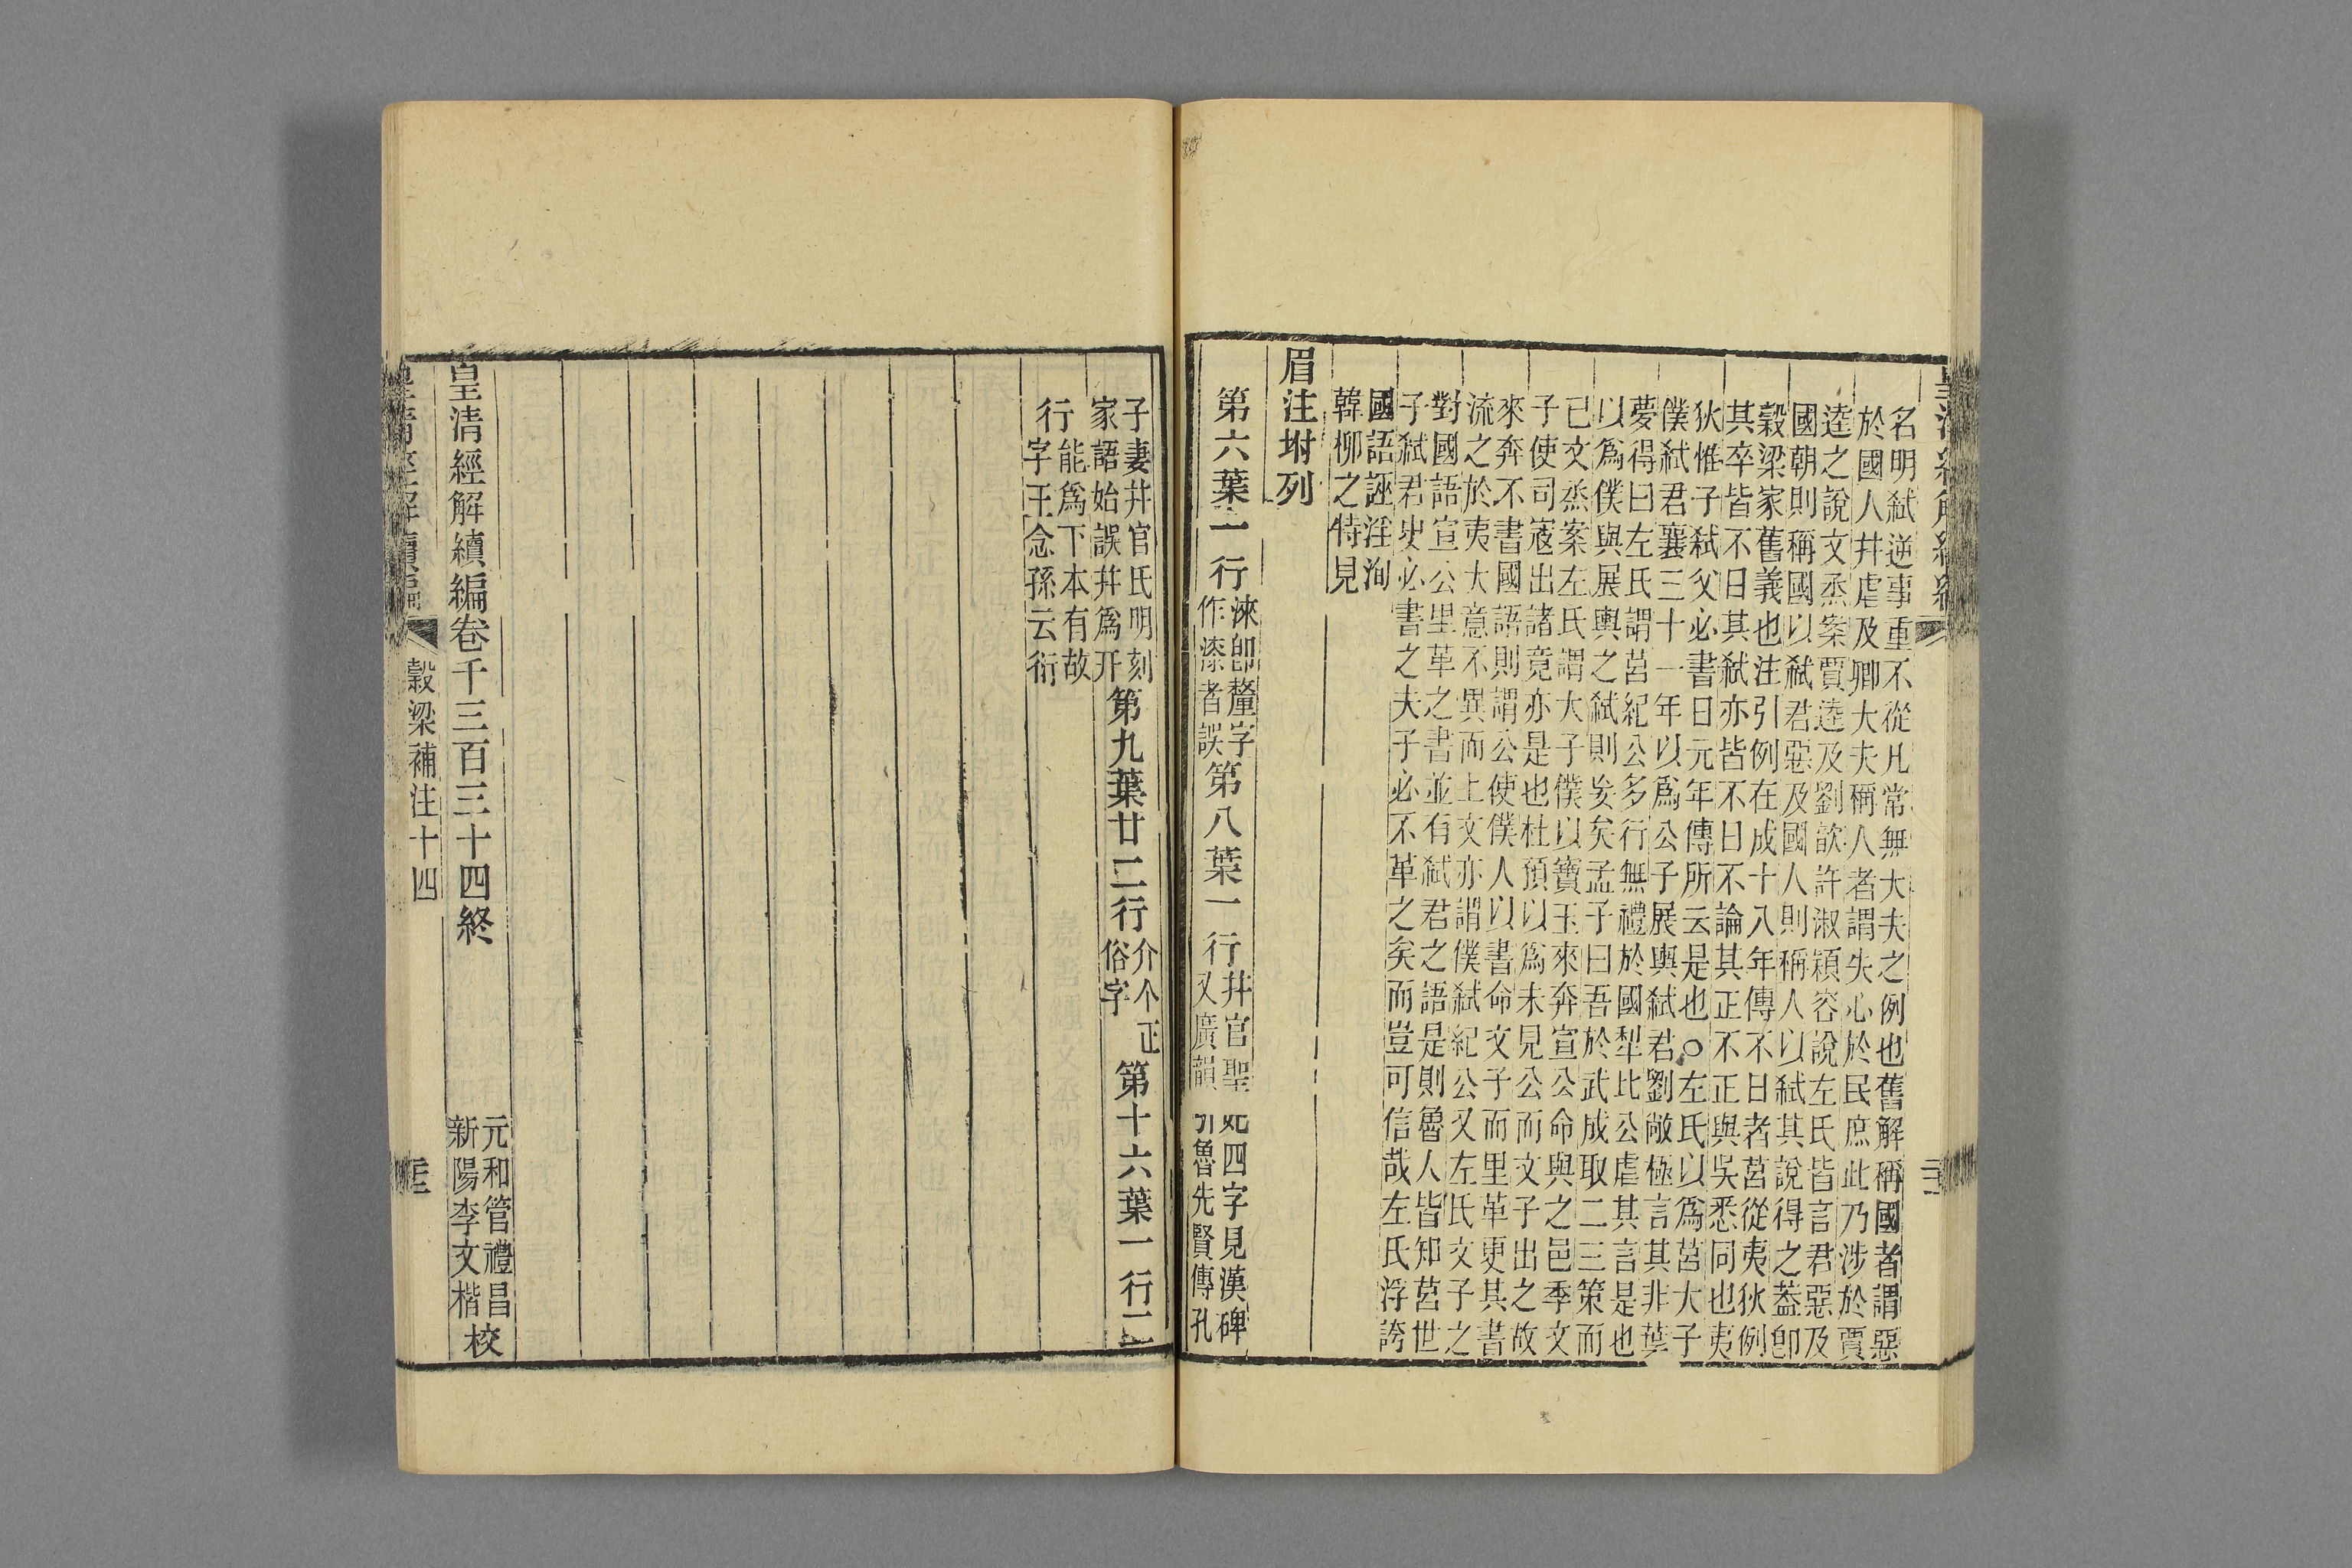 名明弑逆事重不從凡常無大夫之例也舊解稱國者謂惡
於國人幷虐及卿大夫稱人者謂失心於民庶此乃涉於賈
逵之說文烝案賈逵及劉歆許淑穎容說左氏皆言君惡及
國朝則稱國以弑君惡及國人則稱人以弑其說得之蓋卽
穀梁家舊義也注引例在成十八年傳不日者莒從夷狄例
其卒皆不日其弑亦皆不日不論其正不正與吳悉同也夷
狄惟子弑父必書日元年傳所云是也○左氏以爲莒大子
僕弑君襄三十一年以爲公子展輿弑君劉敞極言其非葉
夢得曰左氏謂莒紀公多行無禮於國犁比公虐其言是也
以爲僕與展輿之弑則妄矣孟子曰吾於武成取二三策而
已文烝案左氏謂大子僕以寶玉來奔宣公命與之邑季文
子使司寇出諸竟亦是也杜預以爲未見公而文子出之故
來奔不書國語則謂公使僕人以書命文子而里革更其書
流之於夷大意不異而上文亦謂僕弑紀公又左氏文子之
對國語宣公里革之書並有弑君之語是則魯人皆知莒世
子弑君史必書之夫子必不革之矣而豈可信哉左氏浮誇
國語誣淫洵
韓柳之特見
眉注坿列
第六葉一行淶卽釐字
作漆者誤第八葉一行幷官聖
妃四字見漢碑
又廣韻引魯先賢傳孔
子妻幷官氏明刻
家語始誤幷爲开第九葉廿二行介个正
俗字第十六葉一行二
行能爲下本有故
字王念孫云衍
皇清經解續編卷千三百三十四終
元和管禮昌
新陽李文楷校
皇清經解續編
穀梁補注十四